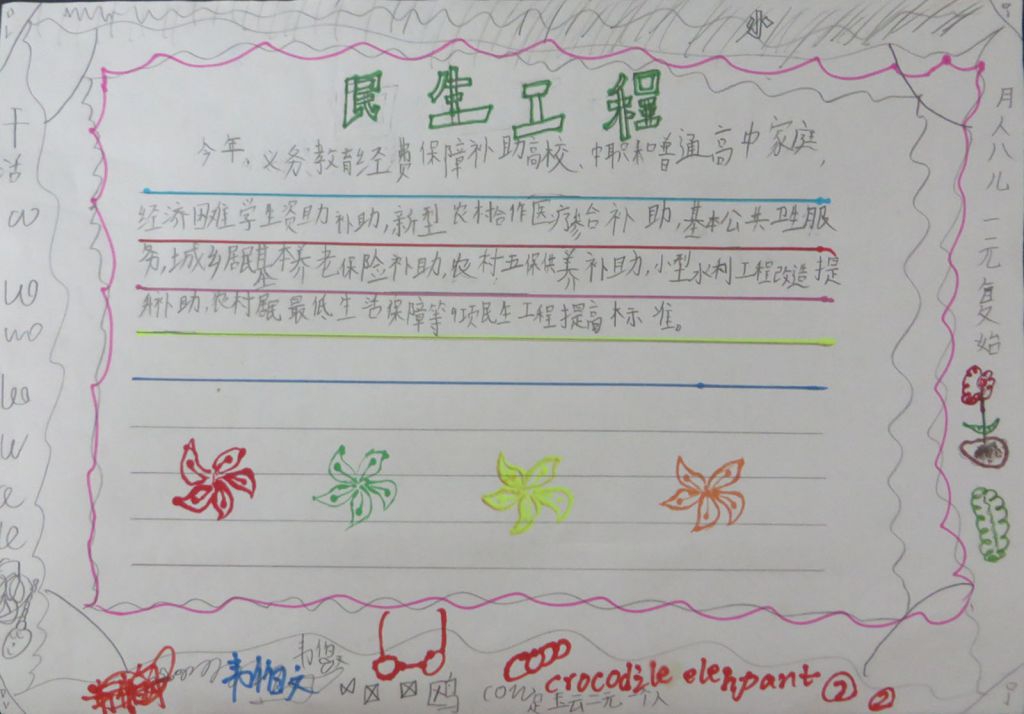 民生工程
今年、义务教育经费保障补助高校、中职和普通高中家庭,
经济困难学生资助补助,新型农村合作医疗参合补助,基本公共卫生服
务,城乡居民基本养老保险补助,农村五保供养补助,小型水利工程改造提
补助,农村居民最低生活保障等 项民生工程提高标准。
月人八儿一二元复始
干活
crocodile elehpant ② ②